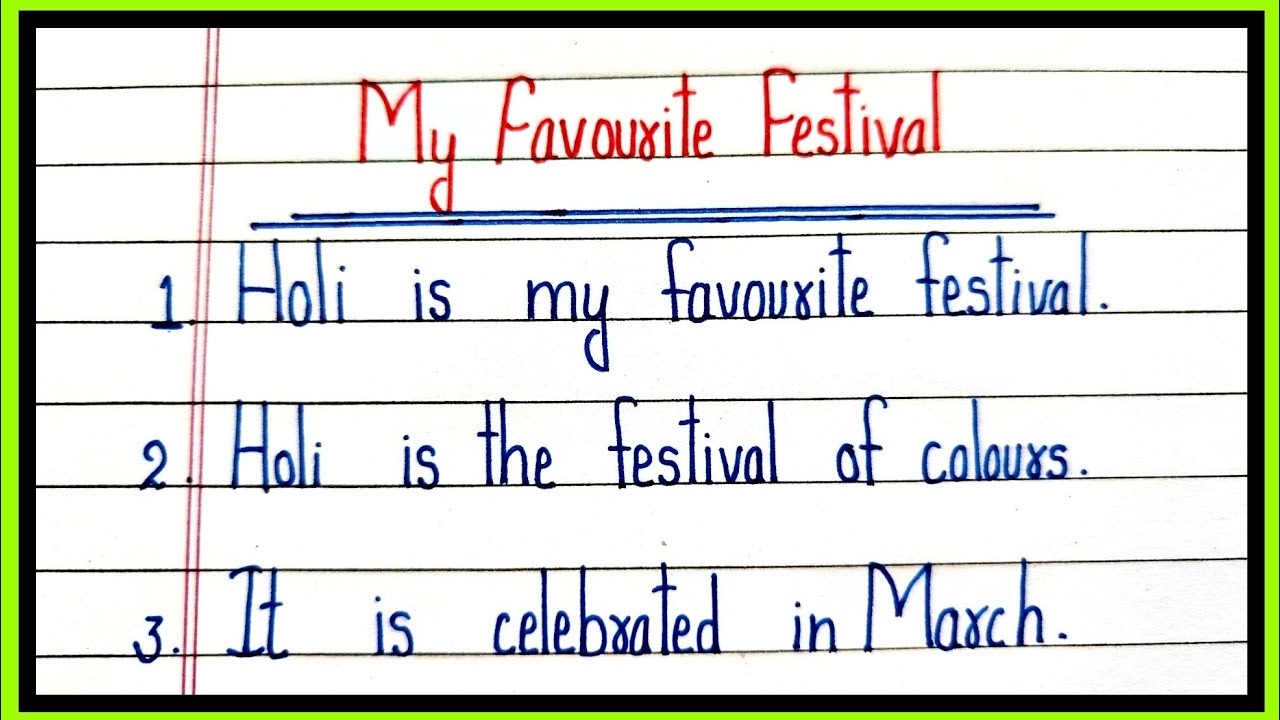 My Favourite Festival
1. Holi is my favourite festival.
2. Holi is the festival of colours.
3. It is celebrated in March.